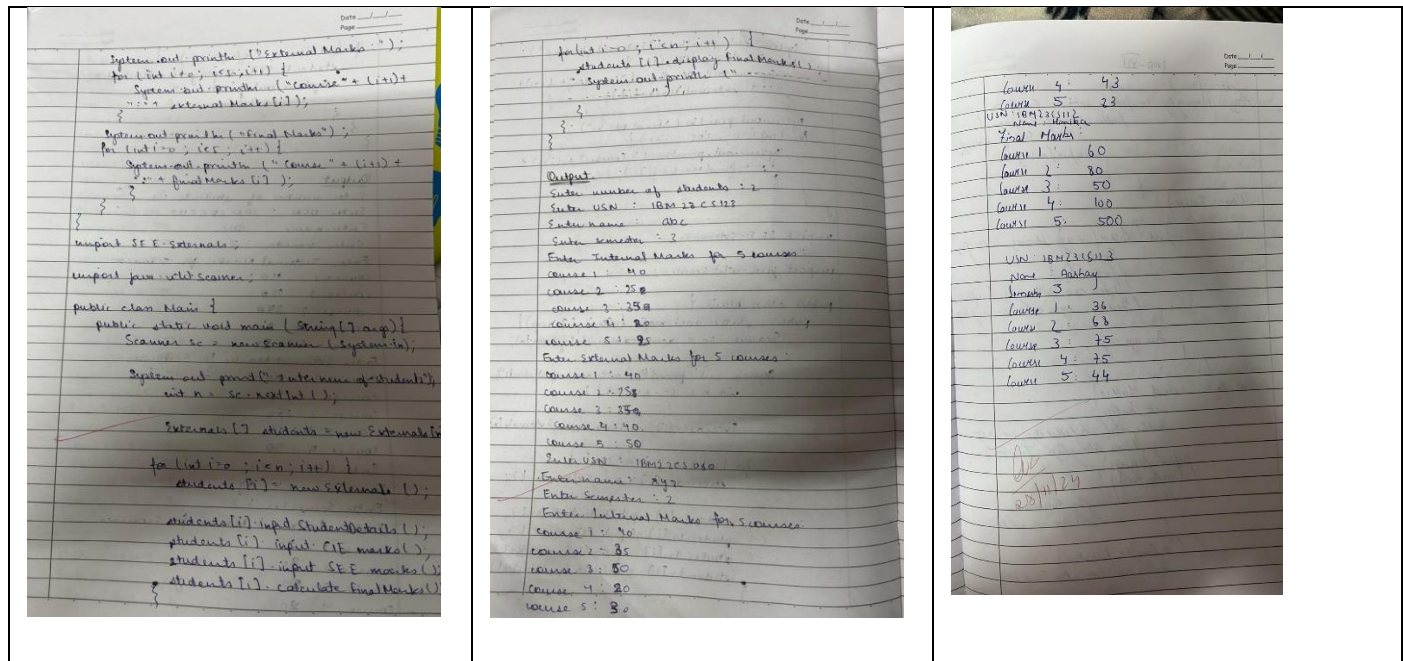 Date
Page
System.out.println ("External Marks : ");
for (int i=0; i<5; i++) {
System.out.println ("Course" + (i+1) +
":" + external Marks [i]);
}
System.out.println ("Final Marks");
for (int i=0 ; i<5 ; i++) {
System.out.println ("Course" + (i+1) +
":" + finalMarks [i] );
}
}
}
import SEE.Externals;
import java.util.Scanner;
public class Main {
public static void main (String[] args) {
Scanner sc = new Scanner (System.in);
System.out.print (" enter num of students");
int n = sc.nextInt ();
Externals [] students = new Externals [n
for (int i=0 ; i<n ; i++) {
students [i] = new Externals ();
students [i].input StudentDetails ();
students [i].input CIE marks ();
students [i].input SEE marks ();
students [i].calculate FinalMarks ()
}
Date
Page
for (int i=0 ; i<n ; i++) {
students [i].display FinalMarks ();
System.out.println ("
");
}
}
}
Output
Enter number of students : 2
Enter USN : 1BM23CS123
Enter name : abc
Enter semester : 3
Enter Internal Marks for 5 courses :
course 1 : 40
course 2 :
course 3 :
course 4 : 20
course 5 : 25
Enter External Marks for 5 courses :
course 1 : 40
course 2 :
course 3 :
course 4 : 40
course 5 : 50
Enter USN :
Enter name : xyz
Enter Semester : 2
Enter Internal Marks for 5 courses:
course 1 : 40
course 2 : 35
course 3 : 50
course 4 : 20
course 5 : 30
Date
Page
Course 4 : 43
Course 5 : 23
USN : 1BM23CS112
Name :
Final Marks :
Course 1 : 60
Course 2 : 80
Course 3 : 50
Course 4 : 100
Course 5 : 500
USN : 1BM23CS113
Name : Aashay
Semester 3
Course 1 : 36
Course 2 : 68
Course 3 : 75
Course 4 : 75
Course 5 : 44
28/11/24